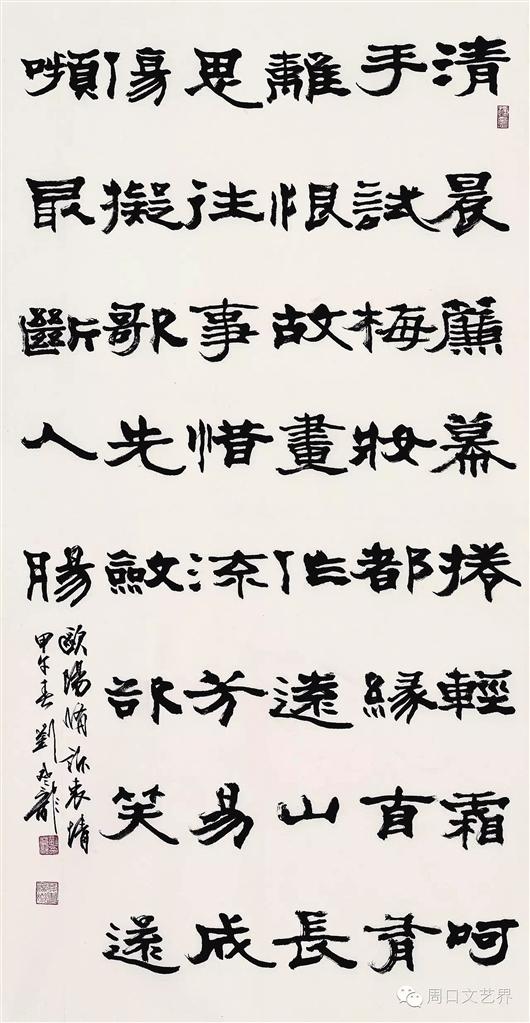 清晨簾幕捲輕霜呵
手試梅妝都緣自有
離恨故畫作遠山長
思往事惜流芳易成
傷擬歌先斂卻笑還
嚬最斷人腸
歐陽修訴衷情
甲午春劉
周口文艺界